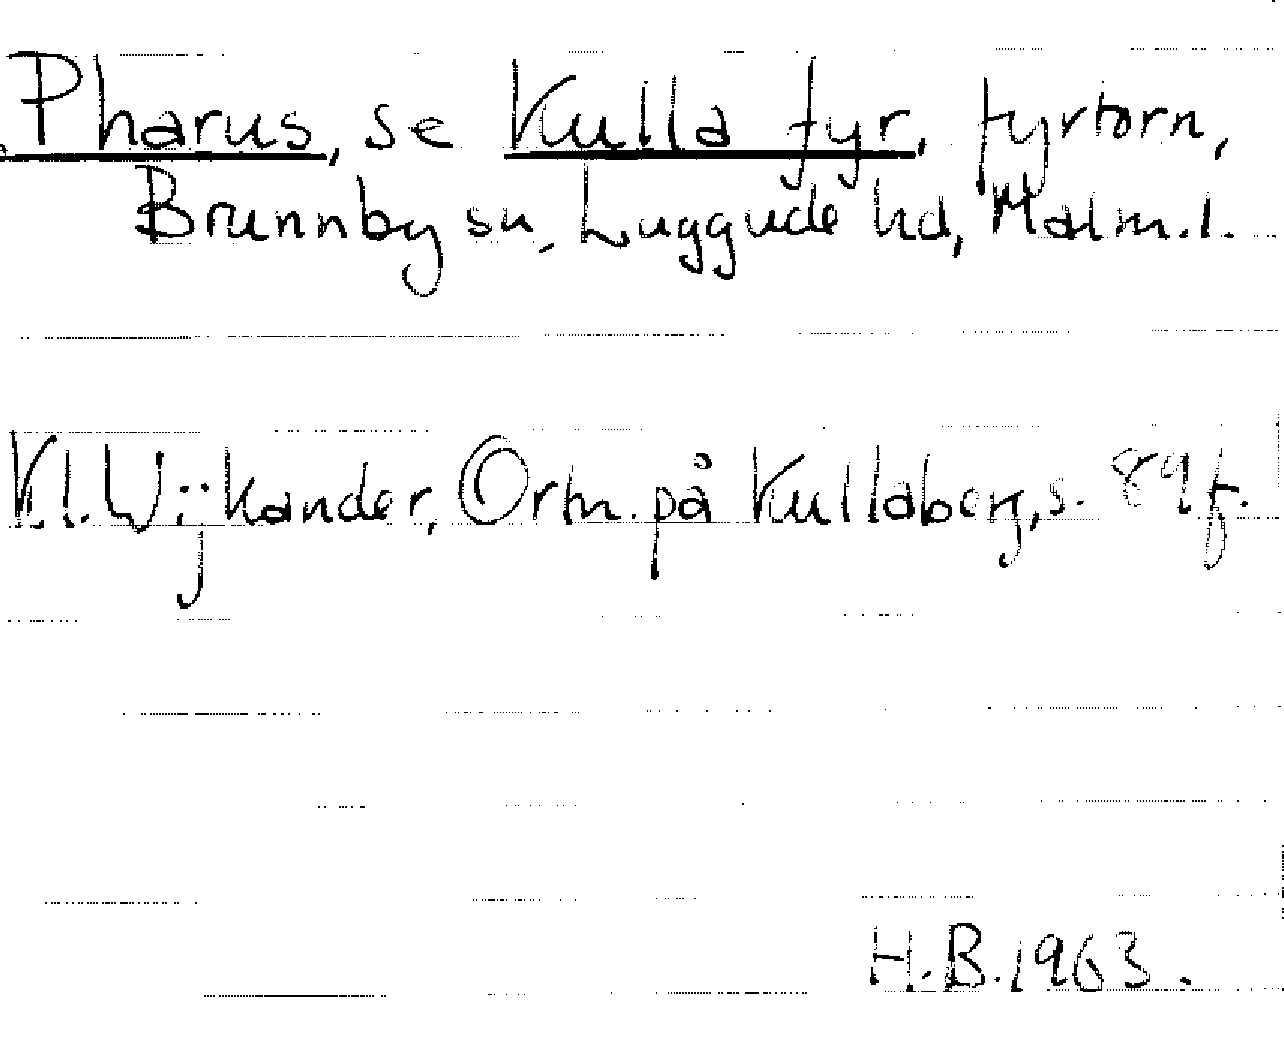 Pharus, se Kulla fyr, fyrtorn,
Brunnby sn, Luggude hd, Malm.l.
K.I. Wijkander, Ortn. på Kullaberg, s. 89 f.
H.B. 1963.